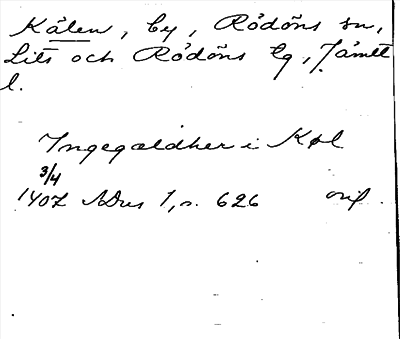 Kälen, by, Rödöns sn,
Lits och Rödöns tg, Jämtl
l.
Ingegældher i Køl
3/4
1407 NDus 1, s. 626 orig.